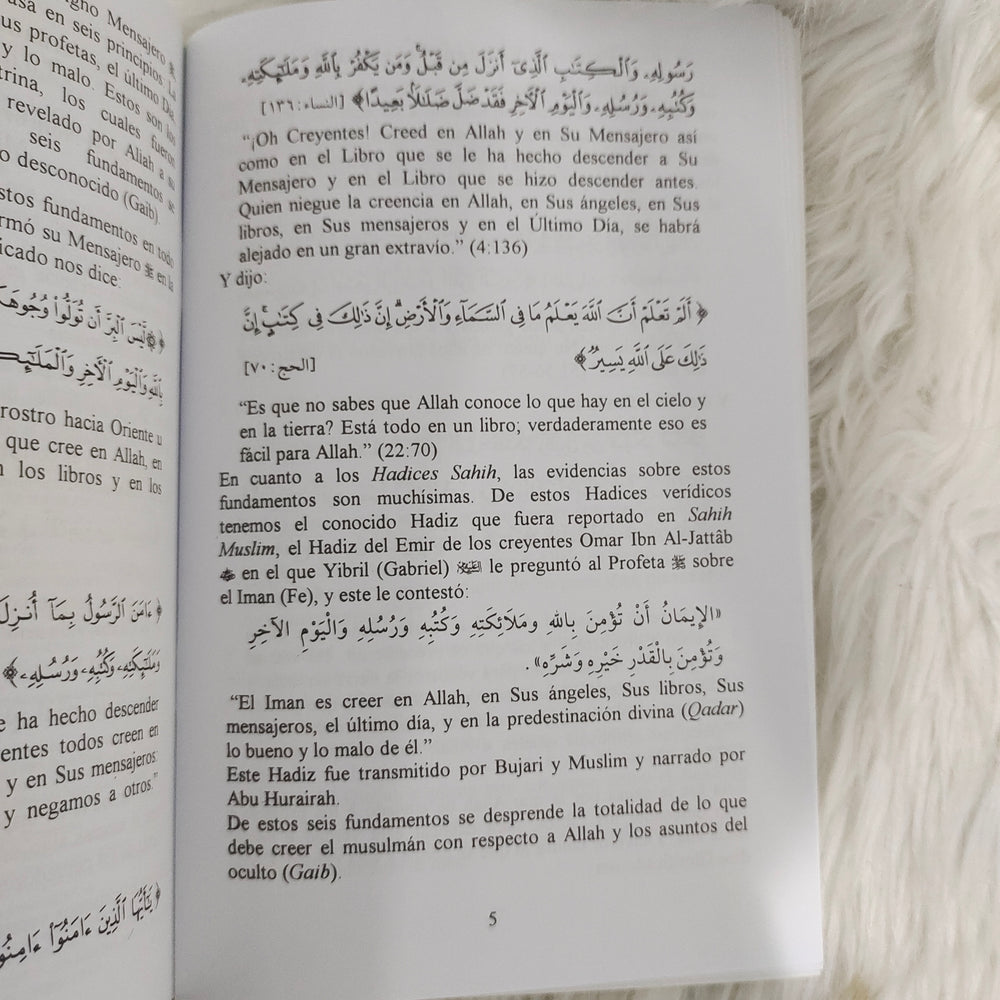 gno Mensajero ﷺ
asa en seis principios: La
us profetas, el último Día,
y lo malo. Estos son los
trina, los cuales fueron
revelado por Allah a su
seis fundamentos se
o desconocido (Gaib).
stos fundamentos en todo
rmó su Mensajero ﷺ en la
icado nos dice:
﴿لَّيْسَ ٱلْبِرَّ أَن تُوَلُّوا۟ وُجُوهَكُمْ
بِٱللَّهِ وَٱلْيَوْمِ ٱلْأَخِرِ وَٱلْمَلَٰٓئِكَةِ
rostro hacia Oriente u
que cree en Allah, en
n los libros y en los
﴿ءَامَنَ ٱلرَّسُولُ بِمَآ أُنزِلَ
وَمَلَٰٓئِكَتِهِۦ وَكُتُبِهِۦ وَرُسُلِهِۦ﴾
e ha hecho descender
entes todos creen en
y en Sus mensajeros:
y negamos a otros."
﴿يَٰٓأَيُّهَا ٱلَّذِينَ ءَامَنُوٓا۟ ءَامِنُوا۟
رَسُولِهِۦ وَٱلْكِتَٰبِ ٱلَّذِىٓ أَنزَلَ مِن قَبْلُ ۚ وَمَن يَكْفُرْ بِٱللَّهِ وَمَلَٰٓئِكَتِهِۦ
وَكُتُبِهِۦ وَرُسُلِهِۦ وَٱلْيَوْمِ ٱلْأَخِرِ فَقَدْ ضَلَّ ضَلَٰلًۢا بَعِيدًا﴾ [النساء: ١٣٦]
“¡Oh Creyentes! Creed en Allah y en Su Mensajero así
como en el Libro que se le ha hecho descender a Su
Mensajero y en el Libro que se hizo descender antes.
Quien niegue la creencia en Allah, en Sus ángeles, en Sus
libros, en Sus mensajeros y en el Último Día, se habrá
alejado en un gran extravío.” (4:136)
Y dijo:
﴿أَلَمْ تَعْلَمْ أَنَّ ٱللَّهَ يَعْلَمُ مَا فِى ٱلسَّمَآءِ وَٱلْأَرْضِ ۗ إِنَّ ذَٰلِكَ فِى كِتَٰبٍ ۚ إِنَّ
ذَٰلِكَ عَلَى ٱللَّهِ يَسِيرٌ﴾ [الحج: ٧٠]
“Es que no sabes que Allah conoce lo que hay en el cielo y
en la tierra? Está todo en un libro; verdaderamente eso es
fácil para Allah.” (22:70)
En cuanto a los Hadices Sahih, las evidencias sobre estos
fundamentos son muchísimas. De estos Hadices verídicos
tenemos el conocido Hadiz que fuera reportado en Sahih
Muslim, el Hadiz del Emir de los creyentes Omar Ibn Al-Jattâb
en el que Yibril (Gabriel) le preguntó al Profeta ﷺ sobre
el Iman (Fe), y este le contestó:
«الإِيمَانُ أَنْ تُؤْمِنَ بِاللهِ ومَلَائِكَتِهِ وَكُتُبِهِ وَرُسُلِهِ وَالْيَوْمِ الآخِرِ
وَتُؤْمِنَ بِالْقَدْرِ خَيْرِهِ وَشَرِّهِ».
“El Iman es creer en Allah, en Sus ángeles, Sus libros, Sus
mensajeros, el último día, y en la predestinación divina (Qadar)
lo bueno y lo malo de él.”
Este Hadiz fue transmitido por Bujari y Muslim y narrado por
Abu Hurairah.
De estos seis fundamentos se desprende la totalidad de lo que
debe creer el musulmán con respecto a Allah y los asuntos del
oculto (Gaib).
5